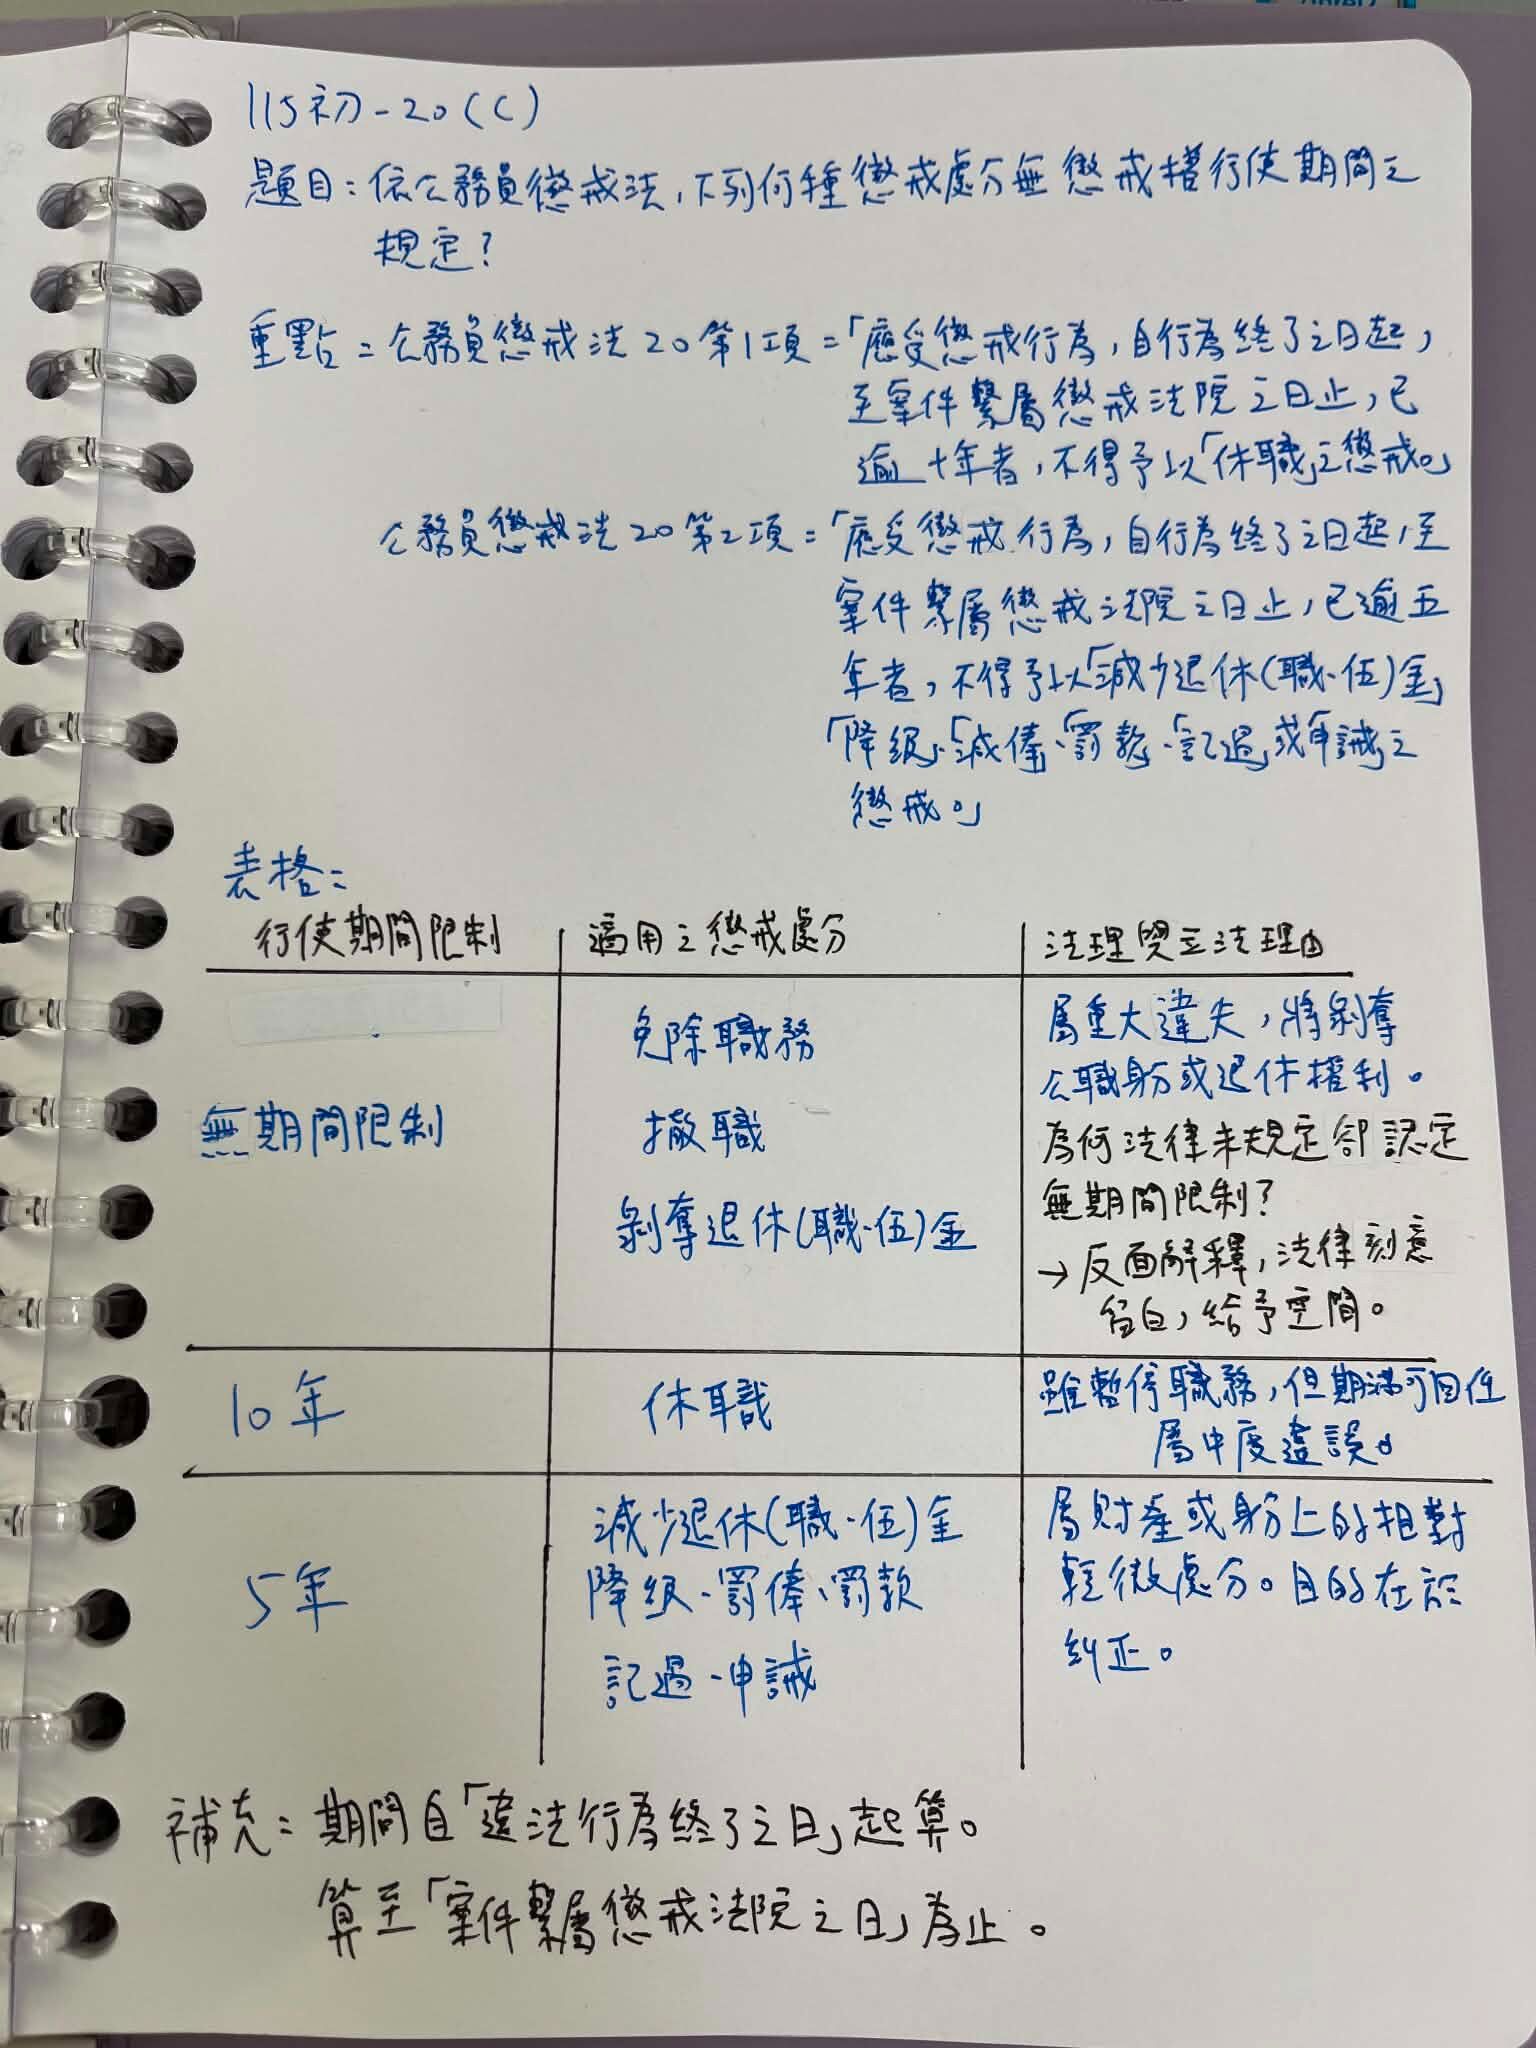 115初-20(C)
題目：依公務員懲戒法，下列何種懲戒處分無懲戒權行使期間之
規定？
重點=公務員懲戒法20第1項=「應受懲戒行為，自行為終了之日起，
至案件繫屬懲戒法院之日止，已
逾十年者，不得予以「休職」之懲戒。」
公務員懲戒法20第2項=「應受懲戒行為，自行為終了之日起，至
案件繫屬懲戒法院之日止，已逾五
年者，不得予以「減少退休(職、伍)金」
「降級」、「減俸」、「罰款」、「記過」或「申誡」之
懲戒。」
表格=
行使期間限制 適用之懲戒處分 法理與立法理由
無期間限制
免除職務
撤職
剝奪退休(職、伍)金
屬重大違失，將剝奪
公職身分或退休權利。
為何法律未規定卻認定
無期間限制？
→反面解釋，法律刻意
留白，給予空間。
10年 休職
雖暫停職務，但期滿可回任
屬中度違誤。
5年
減少退休(職、伍)金
降級、罰俸、罰款
記過、申誡
屬財產或身分上的相對
輕微處分。目的在於
糾正。
補充=期間自「違法行為終了之日」起算。
算至「案件繫屬懲戒法院之日」為止。